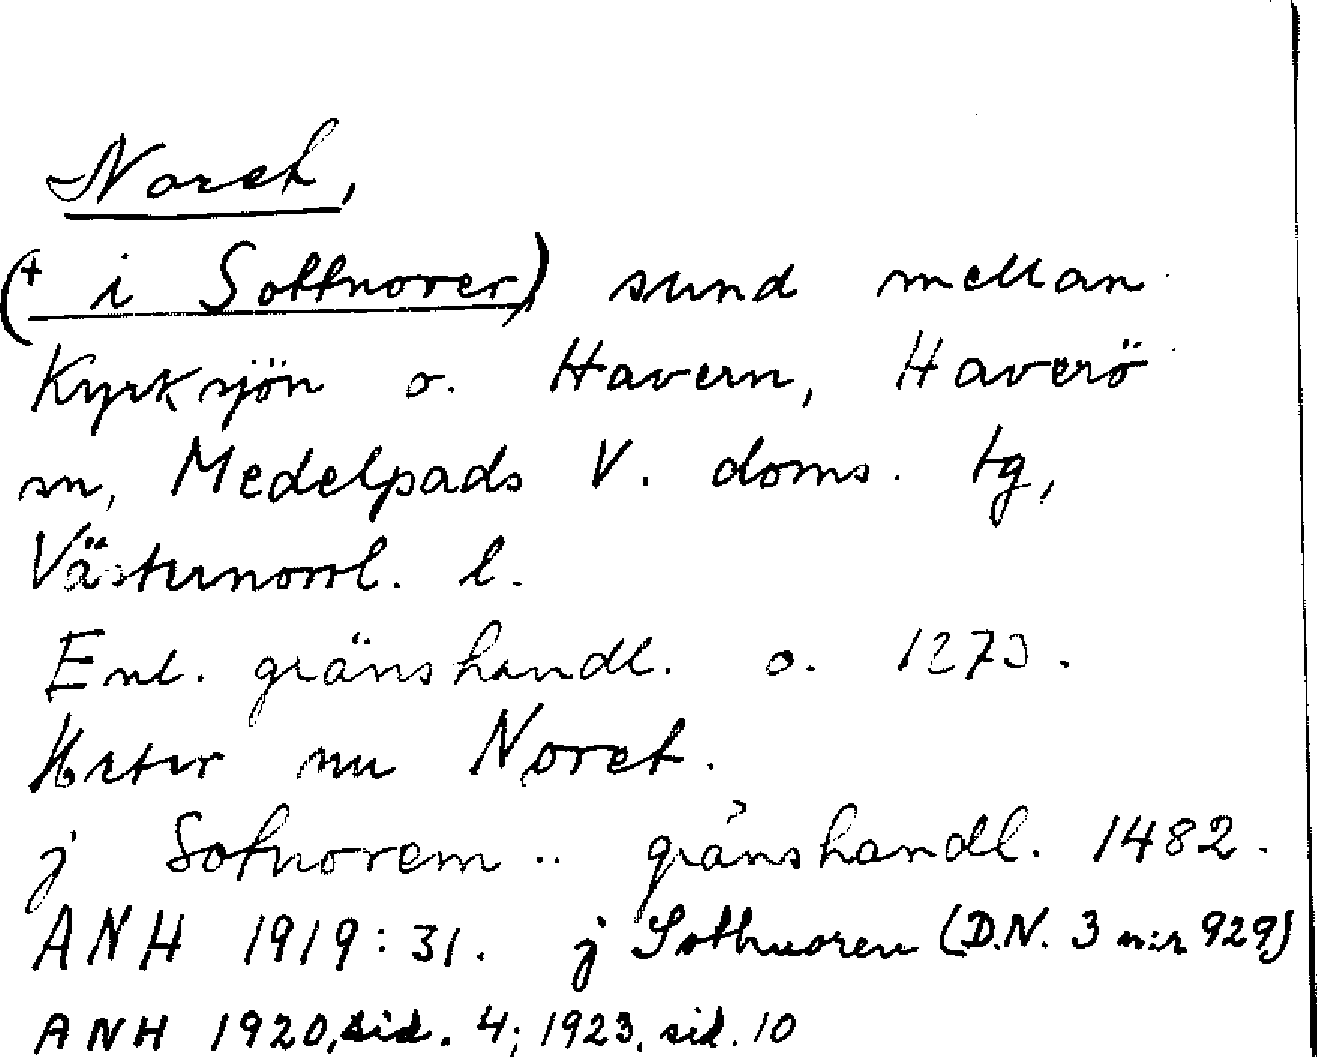 Noret,
(+ i Sottnorer) sund mellan
Kyrksjön o. Havern, Haverö
sn, Medelpads V. doms. tg,
Västernorrl. l.
Enl. gränshandl. o. 1273.
Heter nu Noret.
j Sotnorem .. gränshandl. 1482.
ANH 1919:31. j Sothnoren (D.N. 3 n:r 929)
ANH 1920, sid. 4; 1923, sid. 10